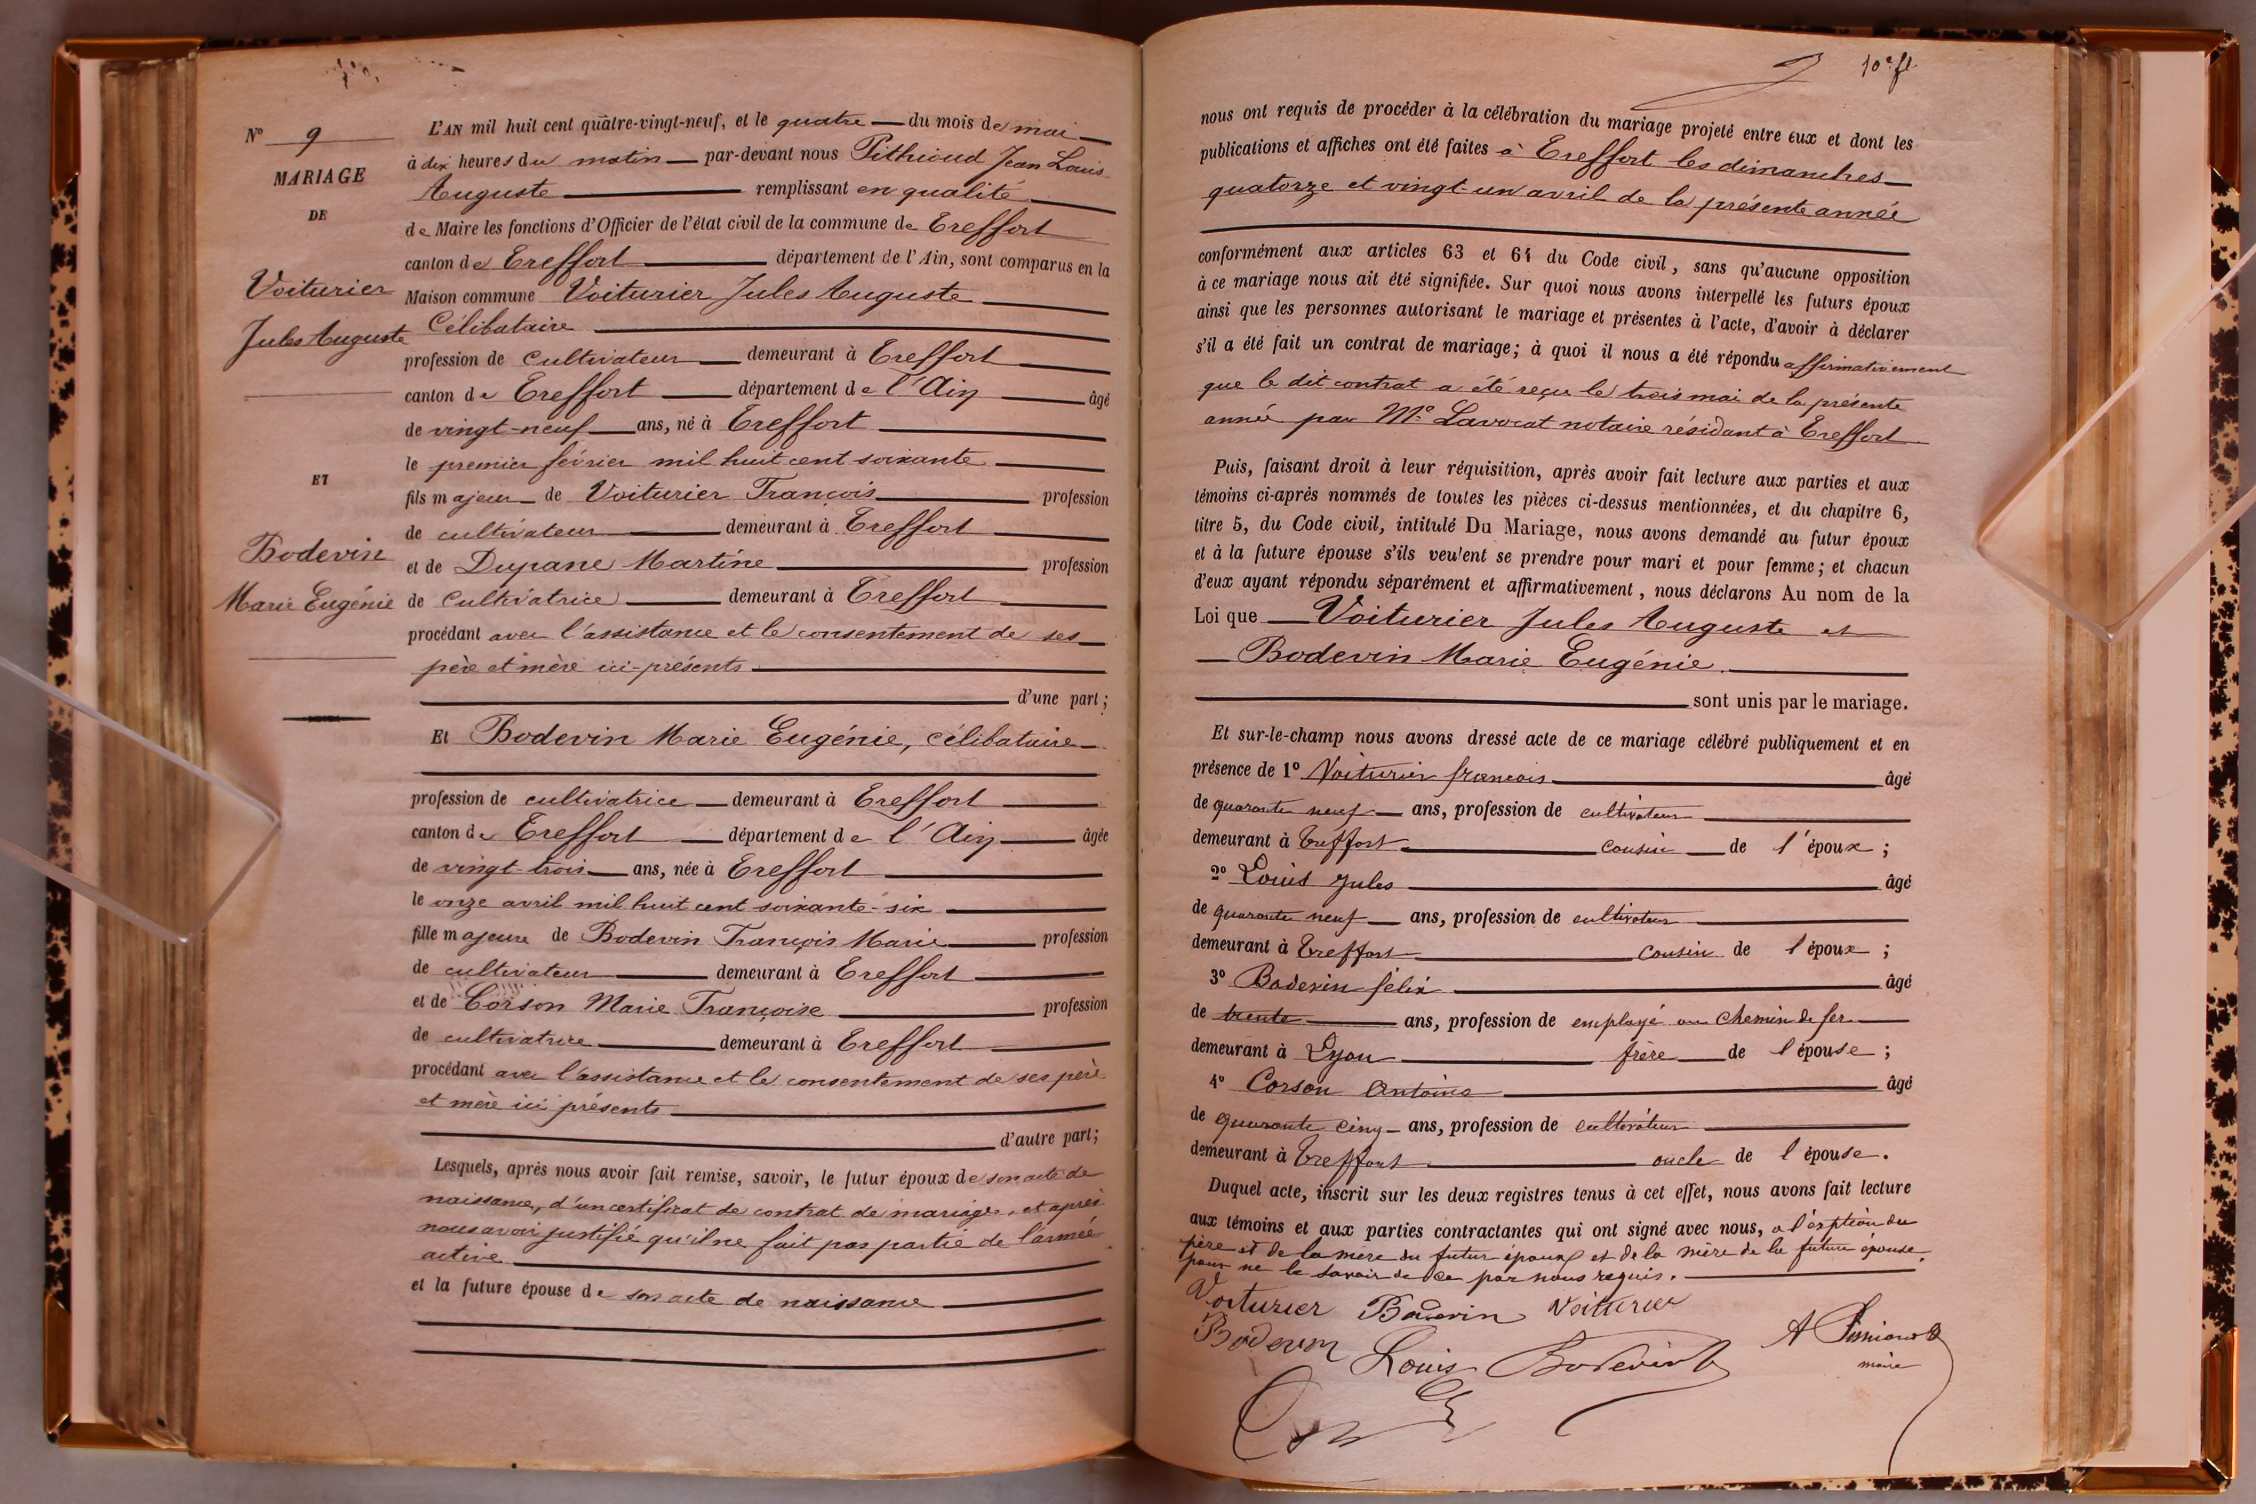 N° 9
MARIAGE
DE
Voiturier
Jules Auguste
ET
Bodevin
Marie Eugénie
L'AN mil huit cent quatre-vingt-neuf, et le quatre du mois de mai
à dix heures du matin par-devant nous Pithioud Jean Louis
Auguste remplissant en qualité
de Maire les fonctions d'Officier de l'état civil de la commune de Treffort
canton de Treffort département de l'Ain, sont comparus en la
Maison commune Voiturier Jules Auguste
Célibataire
profession de cultivateur demeurant à Treffort
canton de Treffort département de l'Ain âgé
de vingt-neuf ans, né à Treffort
le premier février mil huit cent soixante
fils majeur de Voiturier François profession
de cultivateur demeurant à Treffort
et de Dupane Martine profession
de cultivatrice demeurant à Treffort
procédant avec l'assistance et le consentement de ses
père et mère ici-présents
d'une part;
Et Bodevin Marie Eugénie, célibataire
profession de cultivatrice demeurant à Treffort
canton de Treffort département de l'Ain âgée
de vingt-trois ans, née à Treffort
le onze avril mil huit cent soixante-six
fille majeure de Bodevin François Marie profession
de cultivateur demeurant à Treffort
et de Corson Marie Françoise profession
de cultivatrice demeurant à Treffort
procédant avec l'assistance et le consentement de ses père
et mère ici présents
d'autre part;
Lesquels, après nous avoir fait remise, savoir, le futur époux de son acte de
naissance, d'un certificat de contrat de mariage, et après
nous avoir justifié qu'il ne fait pas partie de l'armée
active
et la future épouse de son acte de naissance
10e ft
nous ont requis de procéder à la célébration du mariage projeté entre eux et dont les
publications et affiches ont été faites à Treffort les dimanches
quatorze et vingt-un avril de la présente année
conformément aux articles 63 et 64 du Code civil, sans qu'aucune opposition
à ce mariage nous ait été signifiée. Sur quoi nous avons interpellé les futurs époux
ainsi que les personnes autorisant le mariage et présentes à l'acte, d'avoir à déclarer
s'il a été fait un contrat de mariage; à quoi il nous a été répondu affirmativement
que le dit contrat a été reçu le trois mai de la présente
année par Me Lavocat notaire résidant à Treffort
Puis, faisant droit à leur réquisition, après avoir fait lecture aux parties et aux
témoins ci-après nommés de toutes les pièces ci-dessus mentionnées, et du chapitre 6,
titre 5, du Code civil, intitulé Du Mariage, nous avons demandé au futur époux
et à la future épouse s'ils veulent se prendre pour mari et pour femme; et chacun
d'eux ayant répondu séparément et affirmativement, nous déclarons Au nom de la
Loi que Voiturier Jules Auguste et
Bodevin Marie Eugénie.
sont unis par le mariage.
Et sur-le-champ nous avons dressé acte de ce mariage célébré publiquement et en
présence de 1° Voiturier françois âgé
de quarante neuf ans, profession de cultivateur
demeurant à Treffort cousin de l'époux;
2° Louis Jules âgé
de quarante neuf ans, profession de cultivateur
demeurant à Treffort cousin de l'époux;
3° Bodevin félix âgé
de trente ans, profession de employé au chemin de fer
demeurant à Lyon frère de l'épouse;
4° Corson Antoine âgé
de quarante cinq ans, profession de cultivateur
demeurant à Treffort oncle de l'épouse.
Duquel acte, inscrit sur les deux registres tenus à cet effet, nous avons fait lecture
aux témoins et aux parties contractantes qui ont signé avec nous, a l'exption du
père et de la mere du futur époux et de la mère de la future épouse
pour ne le savoir de ce par nous requis.
Voiturier Bodevin Voiturier
Bodevin Louis Bodevin
maire